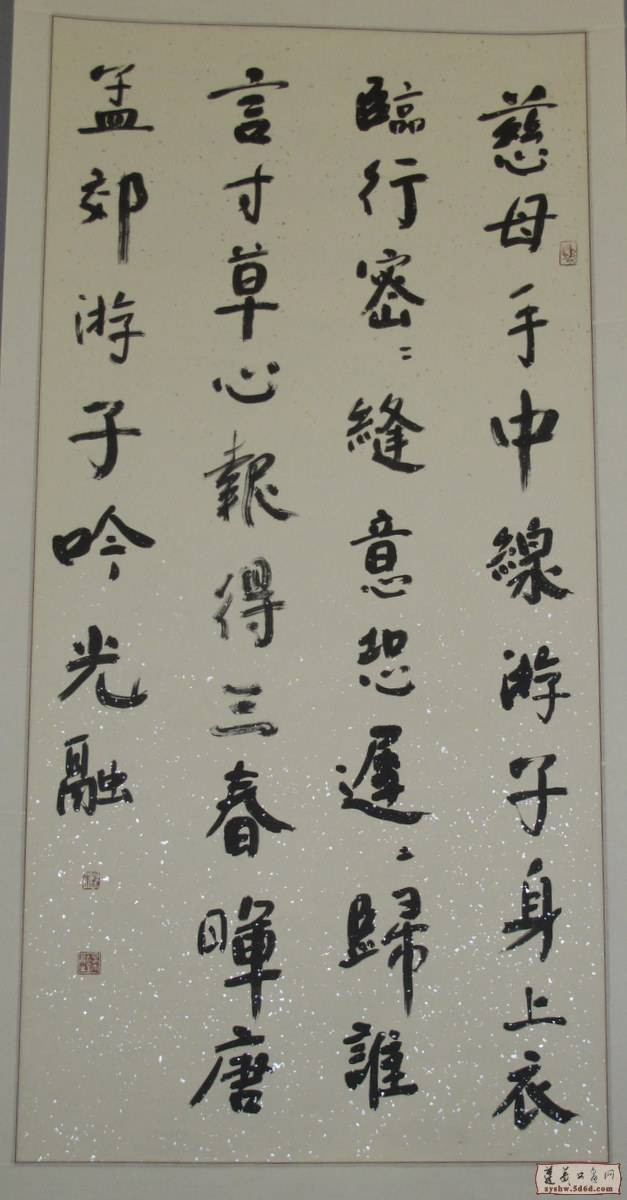 慈母手中線游子身上衣
臨行密〻縫意恐遲〻歸誰
言寸草心報得三春暉唐
孟郊游子吟光融
zyshw.5d6d.com